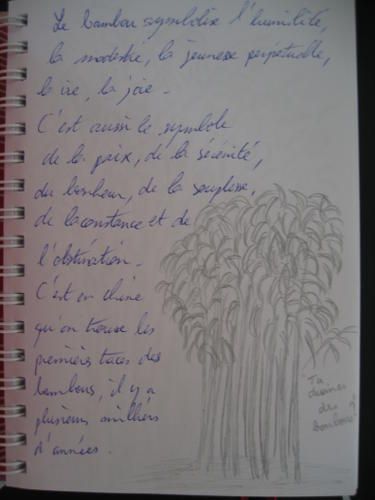 Le bambou symbolise l'humilité,
la modestie, la jeunesse perpétuelle,
la vie, la joie.
C'est aussi le symbole
de la paix, de la sérénité,
du bonheur, de la souplesse,
de la constance et de
l'obstination.
C'est en Chine
qu'on trouve les
premières traces des
bambous, il y a
plusieurs milliers
d'années.
Tu
dessines
des
bambous ?